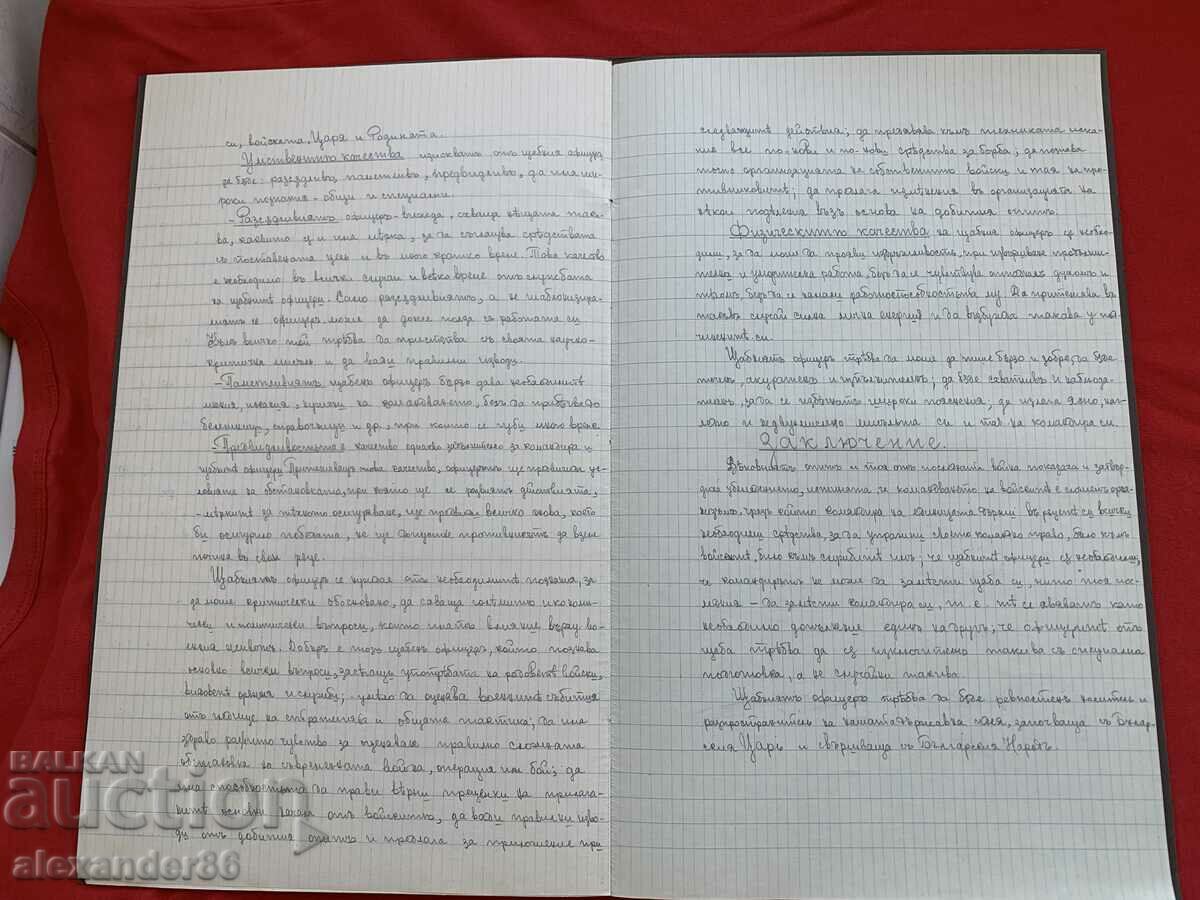 си, войската, Царя и Родината.
Умственитѣ качества изискватъ отъ щабния офицеръ
да бѫде: разсѫдливъ, паметливъ, предвидливъ, да има ши-
роки познания - общи и специални.
- Разсѫдливиятъ офицеръ вглежда, схваща нѣщата така-
ва, каквито сѫ и има мѣрка, за да съгласува срѣдствата
съ поставената цель и въ много кратко време. Това качество
е необходимо въ всички случаи и всѣко време отъ службата
на щабния офицеръ. Само разсѫдливиятъ, а не шаблонизира-
ниятъ офицеръ може да донесе полза съ работата си
Към всичко той трѣбва да пристѫпва съ своята научно-
критична мисъль и да вади правилни изводи.
- Паметливиятъ щабенъ офицеръ бързо дава необходимитѣ
на командването, безъ да прибѣгва до
бележници, справочници и др., при които се губи много време.
- Предвидливостьта е качество еднакво задължително за командира и
щабния офицеръ. Притежаващъ това качество, офицерътъ ще ус-
ловията на обстановката, при които ще се развиятъ действията,
- мѣркитѣ за тѣхното осигуряване, ще всичко онова, което
би осигурило победата, не ще допусне противникътъ да вземе
почина въ свои рѫце.
Щабниятъ офицеръ се нуждае отъ необходимитѣ познания, за
да може критически обосновано, да схваща и икономи-
чески и политически въпроси, които иматъ влияние върху во-
енния животъ. Добъръ е този щабенъ офицеръ, който познава
основно всички въпроси, засѣгащи употрѣбата на родоветѣ войски,
видоветѣ орѫжия и служби; умело да оценява военнитѣ събития
отъ гледище на стратегията и общата тактика; да има
здраво развито чувство за преценяване правилно сложната
обстановка на съвременната война, операция или бой; да
има способностьта да прави вѣрни преценки на прилага-
нитѣ основни начала отъ войскитѣ, да вади правилни изво-
ди отъ добития опитъ и предлага за приложение при
следващитѣ действия; да предявява къмъ техниката иска-
ния все по-нови и по-нови срѣдства за борба; да познава
точно организацията на собственитѣ войски и тая на про-
тивниковитѣ; да предлага изменения въ организацията на
нѣкои подѣления възъ основа на добития опитъ.
Физическитѣ качества на щабния офицеръ сѫ необхо-
дими, за да може да прояви издръжливость, при извършване продължи-
телна и уморителна работа, безъ да се чувствува отпадналъ духомъ и
тѣломъ, безъ да се намали работоспособностьта му. Да притежава въ
такъвъ случай силна лична енергия и да възбужда такава у под-
чиненитѣ си.
Щабниятъ офицеръ трѣбва да може да пише бързо и добре, да бѫде
точенъ, акуратенъ и изпълнителенъ; да бѫде схватливъ и наблюда-
теленъ, за да се избѣгнатъ широки пояснения; да излага ясно, пъл-
но и недвусмислено мисъльта си и тая на командира си.
Заключение.
Вѣковниятъ опитъ и тоя отъ последната война показаха и затвър-
диха убеждението, истината, че командването на войскитѣ е сложенъ орга-
низъмъ, чрезъ който командира на единицата държи въ рѫцетѣ си всички
необходими срѣдства, за да упражни своето командно право, било къмъ
войскитѣ, било къмъ службитѣ имъ; че щабнитѣ офицери сѫ необходими;
че командирътъ не може да замѣсти щаба си, нито тоя пос-
ледния - да замѣсти командира си, т. е. тѣ се явяватъ като
необходимо допълнение единъ на другъ; че офицеритѣ отъ
щаба трѣбва да сѫ изключително такива съ специална
подготовка, а не случайни такива.
Щабниятъ офицеръ трѣбва да бѫде ревностенъ носитель и
разпространитель на нашата държавна идея, започваща съ Бълга-
рския Царь и свършваща съ Българския Народъ.
BALKAN
auction
alexander86